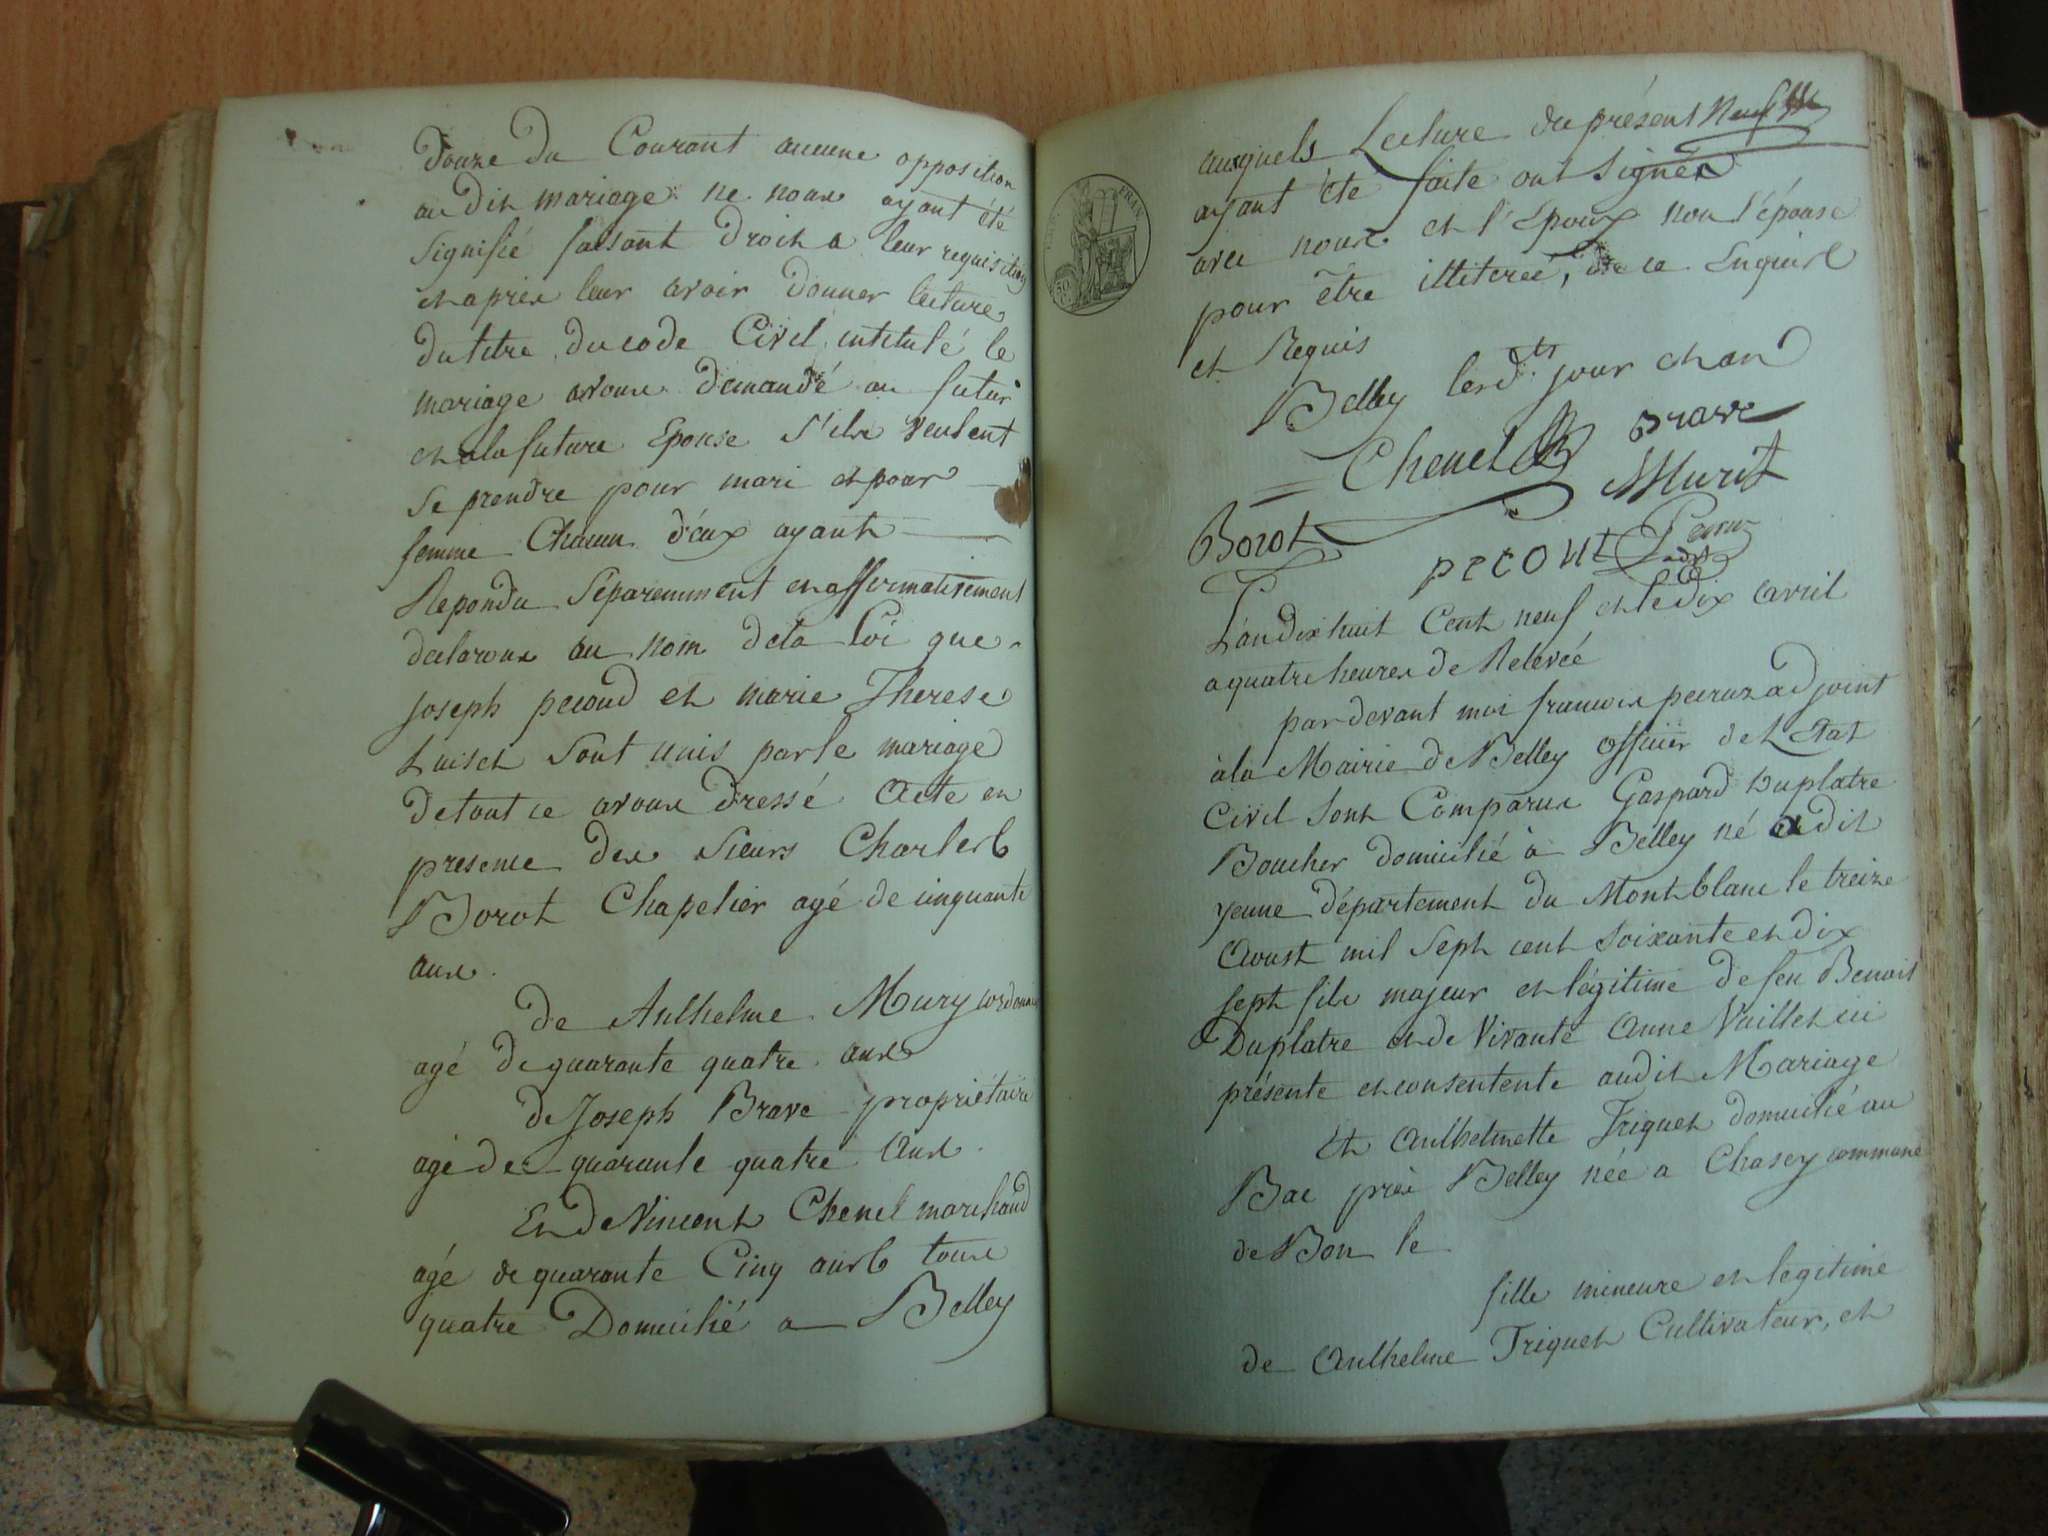 Douze du Courant aucune opposition
audit mariage ne nous ayant été
signifié faisant droit a leur requisition
et après leur avoir donner lecture
du titre du code Civil intitulé le
mariage avons demandé au futur
et a la future Epouse s'ils veulent
se prendre pour mari et pour
femme Chacun d'eux ayant
Repondu Séparemment et affirmativement
declarons au nom de la Loi que
joseph pecoud et marie Therese
sont unis par le mariage
de tout ce avons dressé Acte en
presence des sieurs Charles
Borot Chapelier agé de cinquante
ans.
de Anthelme Mury cordonnier
agé de quarante quatre ans
de Joseph Brave propriétaire
agé de quarante quatre ans.
Et de Vincent Chenel marchand
agé de quarante Cinq ans tous
quatre Domicilié a Belley
auxquels Lecture du présent Neuf
ayant été faite ont signés
avec nous et l'Epoux non l'épouse
pour être illiterée, de ce Enquis
et Requis
Belley les d.ts jour et an
Chenel Brave
Murit
Borot
pecout Peruz
adjt
L'an dix huit Cent neuf et le dix avril
a quatre heures de Relevée
par devant moi francois peruz adjoint
à la Mairie de Belley officier de L'Etat
Civil sont Comparus Gaspard Duplatre
Boucher domicilié à Belley né audit
yenne département du Montblanc le treize
Aoust mil sept cent soixante et dix
sept fils majeur et légitime de feu Benoit
Duplatre et de Vivante Anne Vuillet ici
présente et consentente audit Mariage
Et Anthelmette Triquet domicilié au
Bac près Belley née a Chasey commune
de Bon le
fille mineure et legitime
de Anthelme Triquet Cultivateur, et